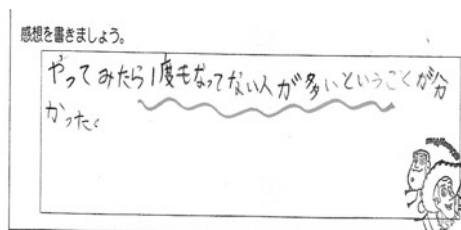 感想を書きましょう。
やってみたら1度もなってない人が多いということが分
かった。